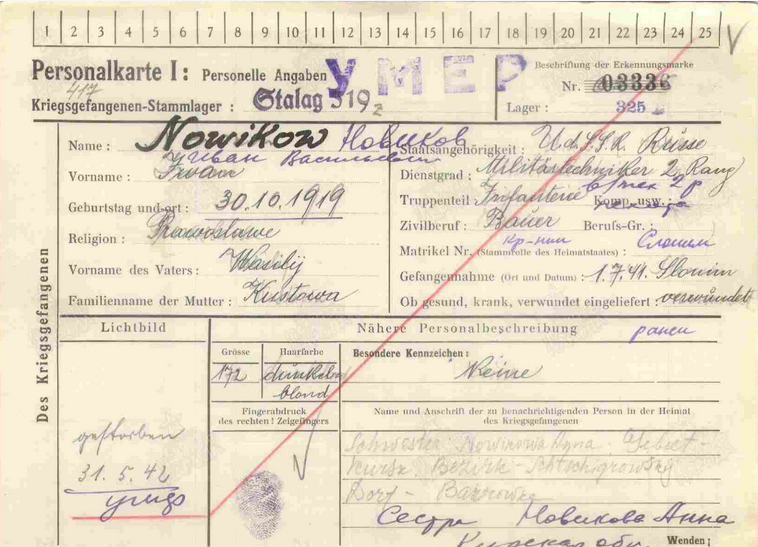 1 2 3 4 5 6 7 8 9 10 11 12 13 14 15 16 17 18 19 20 21 22 23 24 25
Personalkarte I: Personelle Angaben
УМЕР
Beschriftung der Erkennungsmarke
Nr. 03336
417
Kriegsgefangenen-Stammlager: Stalag 319 z
Lager: 325
Des Kriegsgefangenen
Name: Nowikow Новиков
Иван Васильевич
Vorname: Iwan
Geburtstag und -ort: 30.10.1919
Religion: Prawoslawe
Vorname des Vaters: Wasilij
Familienname der Mutter: Kustowa
Staatsangehörigkeit: U.d.S.S.R. Russe
Dienstgrad: Militärtechniker 2. Rang
в/тех 2 р
Truppenteil: Infanterie Komp. usw.:
пехота
Zivilberuf: Bauer Berufs-Gr.:
кр-нин Слоним
Matrikel Nr. (Stammrolle des Heimatstaates):
Gefangennahme (Ort und Datum): 1.7.41. Slonim
Ob gesund, krank, verwundet eingeliefert: verwundet
ранен
Lichtbild
gestorben
31.5.42
Nähere Personalbeschreibung
Grösse
172
Haarfarbe
dunkel
blond
Besondere Kennzeichen:
Keine
Fingerabdruck
des rechten! Zeigefingers
Name und Anschrift der zu benachrichtigenden Person in der Heimat
des Kriegsgefangenen
Schwester Nowikowa Anna Gebiet-
Kursk Bezirk-Schtschigrowsky
Dorf-
Сестра Новикова Анна
Курская обл.
Wenden!